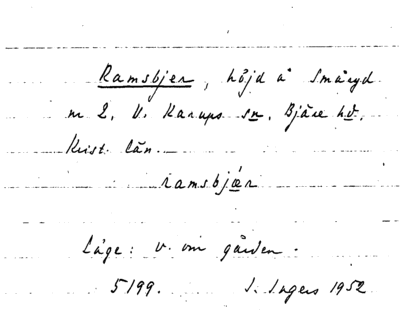 Ramsbjer, höjd å Småryd
nr 2, V. Karups sn, Bjäre hd,
Krist. län.
ramsbjär
Läge: v. om gården.
5199. I. Ingers 1952